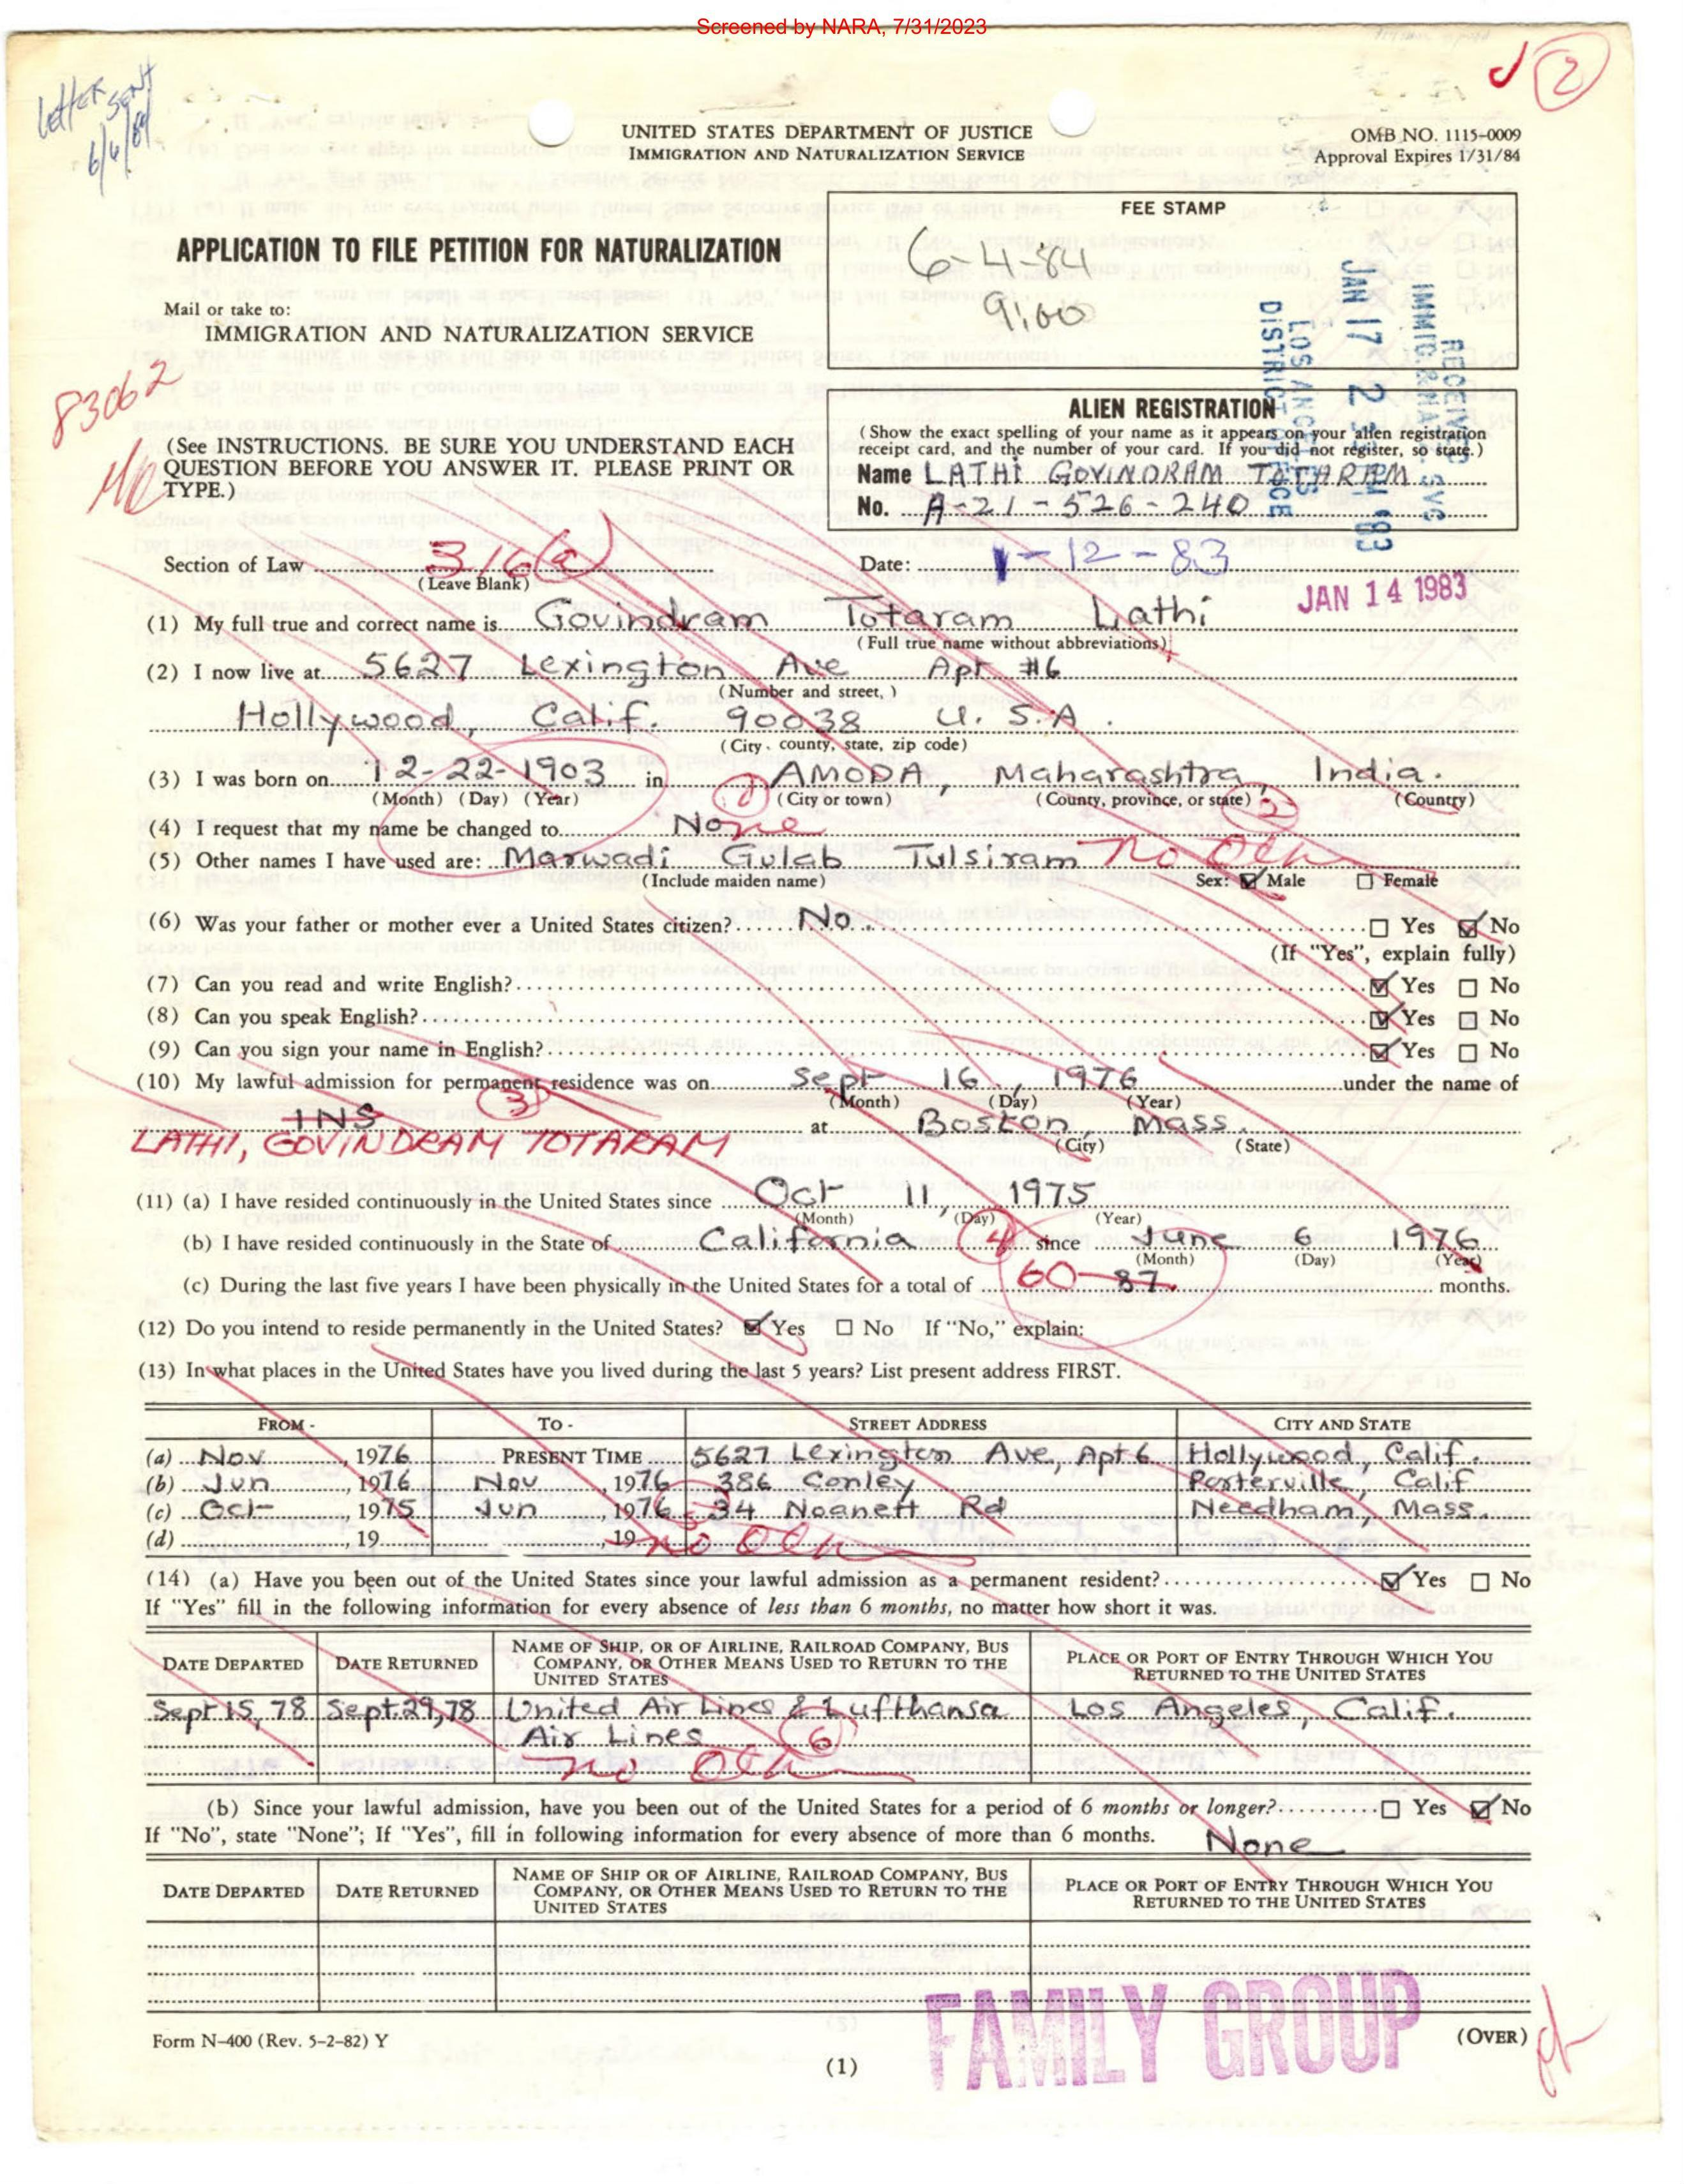 Screened by NARA, 7/31/2023
Letter sent
6/6/84
2
UNITED STATES DEPARTMENT OF JUSTICE
IMMIGRATION AND NATURALIZATION SERVICE
OMB NO. 1115-0009
Approval Expires 1/31/84
FEE STAMP
6-4-84
9:00
APPLICATION TO FILE PETITION FOR NATURALIZATION
Mail or take to:
IMMIGRATION AND NATURALIZATION SERVICE
RECEIVED
IMMIG. & NAT. SVC
JAN 17 2 PM '83
LOS ANGELES
DISTRICT OFFICE
83062
(See INSTRUCTIONS. BE SURE YOU UNDERSTAND EACH
QUESTION BEFORE YOU ANSWER IT. PLEASE PRINT OR
TYPE.)
ALIEN REGISTRATION
(Show the exact spelling of your name as it appears on your alien registration
receipt card, and the number of your card. If you did not register, so state.)
Name LATHI GOVINDRAM TOTARAM
No. A-21-526-240
Section of Law 316(a)
(Leave Blank)
Date: 1-12-83
JAN 14 1983
(1) My full true and correct name is Govindram Totaram Lathi
(Full true name without abbreviations)
(2) I now live at 5627 Lexington Ave Apt #6
(Number and street, )
Hollywood, Calif. 90038 U.S.A.
(City, county, state, zip code)
(3) I was born on 12-22-1903 in AMODA, Maharashtra, India.
(Month) (Day) (Year) 1 (City or town) (County, province, or state) 2 (Country)
(4) I request that my name be changed to None
(5) Other names I have used are: Marwadi Gulab Tulsiram no Oth
(Include maiden name) Sex: ☑ Male ☐ Female
(6) Was your father or mother ever a United States citizen? No ☐ Yes ☑ No
(If "Yes", explain fully)
(7) Can you read and write English? ☑ Yes ☐ No
(8) Can you speak English? ☑ Yes ☐ No
(9) Can you sign your name in English? ☑ Yes ☐ No
(10) My lawful admission for permanent residence was on Sept 16, 1976 under the name of
3 (Month) (Day) (Year)
INS at Boston, Mass.
LATHI, GOVINDRAM TOTARAM (City) (State)
(11) (a) I have resided continuously in the United States since Oct 11, 1975
(Month) (Day) (Year)
(b) I have resided continuously in the State of California 4 since June 6 1976
(Month) (Day) (Year)
(c) During the last five years I have been physically in the United States for a total of 60 87 months.
(12) Do you intend to reside permanently in the United States? ☑ Yes ☐ No If "No," explain:
(13) In what places in the United States have you lived during the last 5 years? List present address FIRST.
FROM - TO - STREET ADDRESS CITY AND STATE
(a) Nov, 1976 PRESENT TIME 5627 Lexington Ave, Apt 6 Hollywood, Calif.
(b) Jun, 1976 Nov, 1976 386 Conley Porterville, Calif
(c) Oct, 1975 Jun, 1976 34 Noanett Rd Needham, Mass.
(d) , 19 , 19 no Oth
(14) (a) Have you been out of the United States since your lawful admission as a permanent resident? ☑ Yes ☐ No
If "Yes" fill in the following information for every absence of less than 6 months, no matter how short it was.
DATE DEPARTED DATE RETURNED NAME OF SHIP, OR OF AIRLINE, RAILROAD COMPANY, BUS COMPANY, OR OTHER MEANS USED TO RETURN TO THE UNITED STATES PLACE OR PORT OF ENTRY THROUGH WHICH YOU RETURNED TO THE UNITED STATES
Sept 15, 78 Sept. 29, 78 United Air Lines & Lufthansa Los Angeles, Calif.
Air Lines 6
no Oth
(b) Since your lawful admission, have you been out of the United States for a period of 6 months or longer? ☐ Yes ☑ No
If "No", state "None"; If "Yes", fill in following information for every absence of more than 6 months. None
DATE DEPARTED DATE RETURNED NAME OF SHIP OR OF AIRLINE, RAILROAD COMPANY, BUS COMPANY, OR OTHER MEANS USED TO RETURN TO THE UNITED STATES PLACE OR PORT OF ENTRY THROUGH WHICH YOU RETURNED TO THE UNITED STATES
FAMILY GROUP
Form N-400 (Rev. 5-2-82) Y
(OVER)
(1)